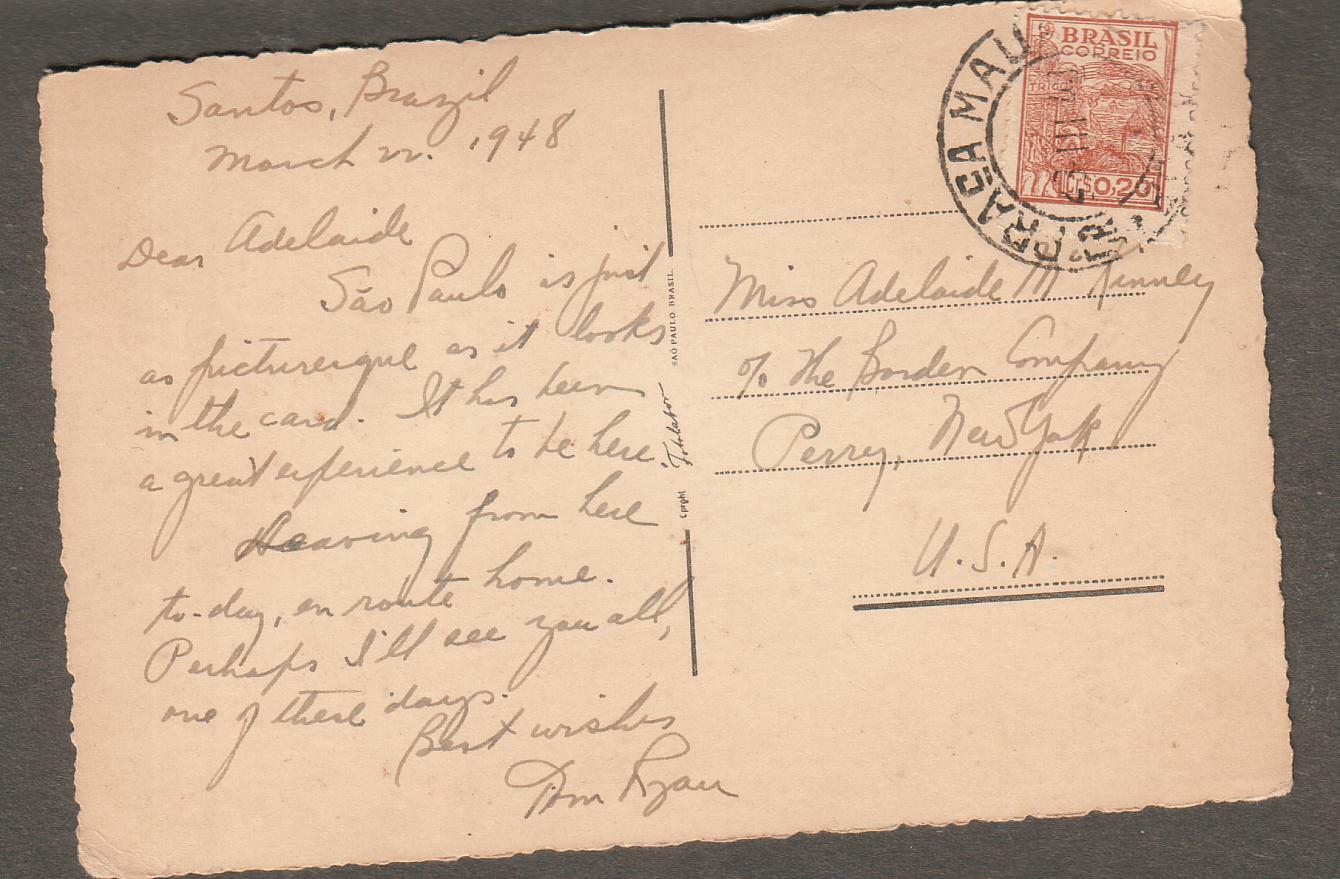 Santos, Brazil
March 22. 1948
Dear Adelaide
São Paulo is just
as picturesque as it looks
in the card. It has been
a great experience to be here.
Leaving from here
to-day, en route home.
Perhaps I'll see you all,
one of these days.
Best wishes
Tom Ryan
SÃO PAULO BRASIL.
Fotolabor
Cprght
BRASIL
CORREIO
TRIGO
CR$0,20
PRAÇA MAUÁ
Miss Adelaide M Kinney
c/o The Borden Company
Perry, New York
U.S.A.